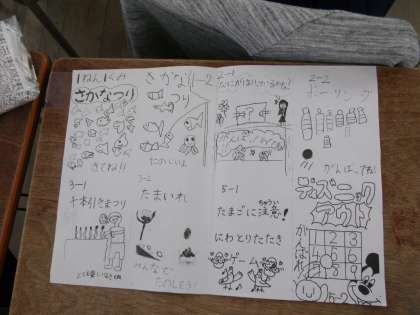 1ねん1くみ
さかなつり
きてね!!
さかな
つり
1-2
たのしいよ
2-1
なにがはいかるかな!
2-2
ボーリング
がんばってね!
3-1
千本引きまつり
3-2
たまいれ
みんなで
たのしもう!
5-1
たまごに注意!
ちゅうい
にわとりたたき
ゲーム
ディズニック
アウト!
がんばれ
1 2 3
4 5 6
7 8 9
5-2